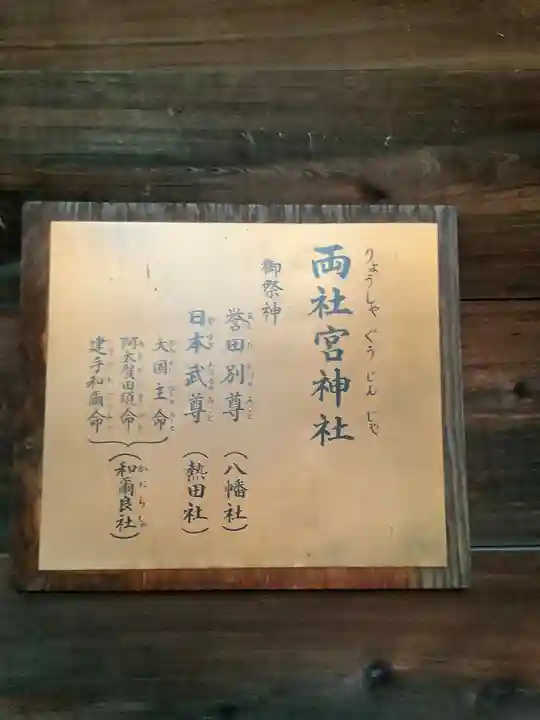 両社宮神社
りょうしゃぐうじんじゃ
御祭神
誉田別尊(八幡社)
日本武尊(熱田社)
大国主命
阿太賀田須命
建手和爾命
(和爾良社)
かにらしゃ